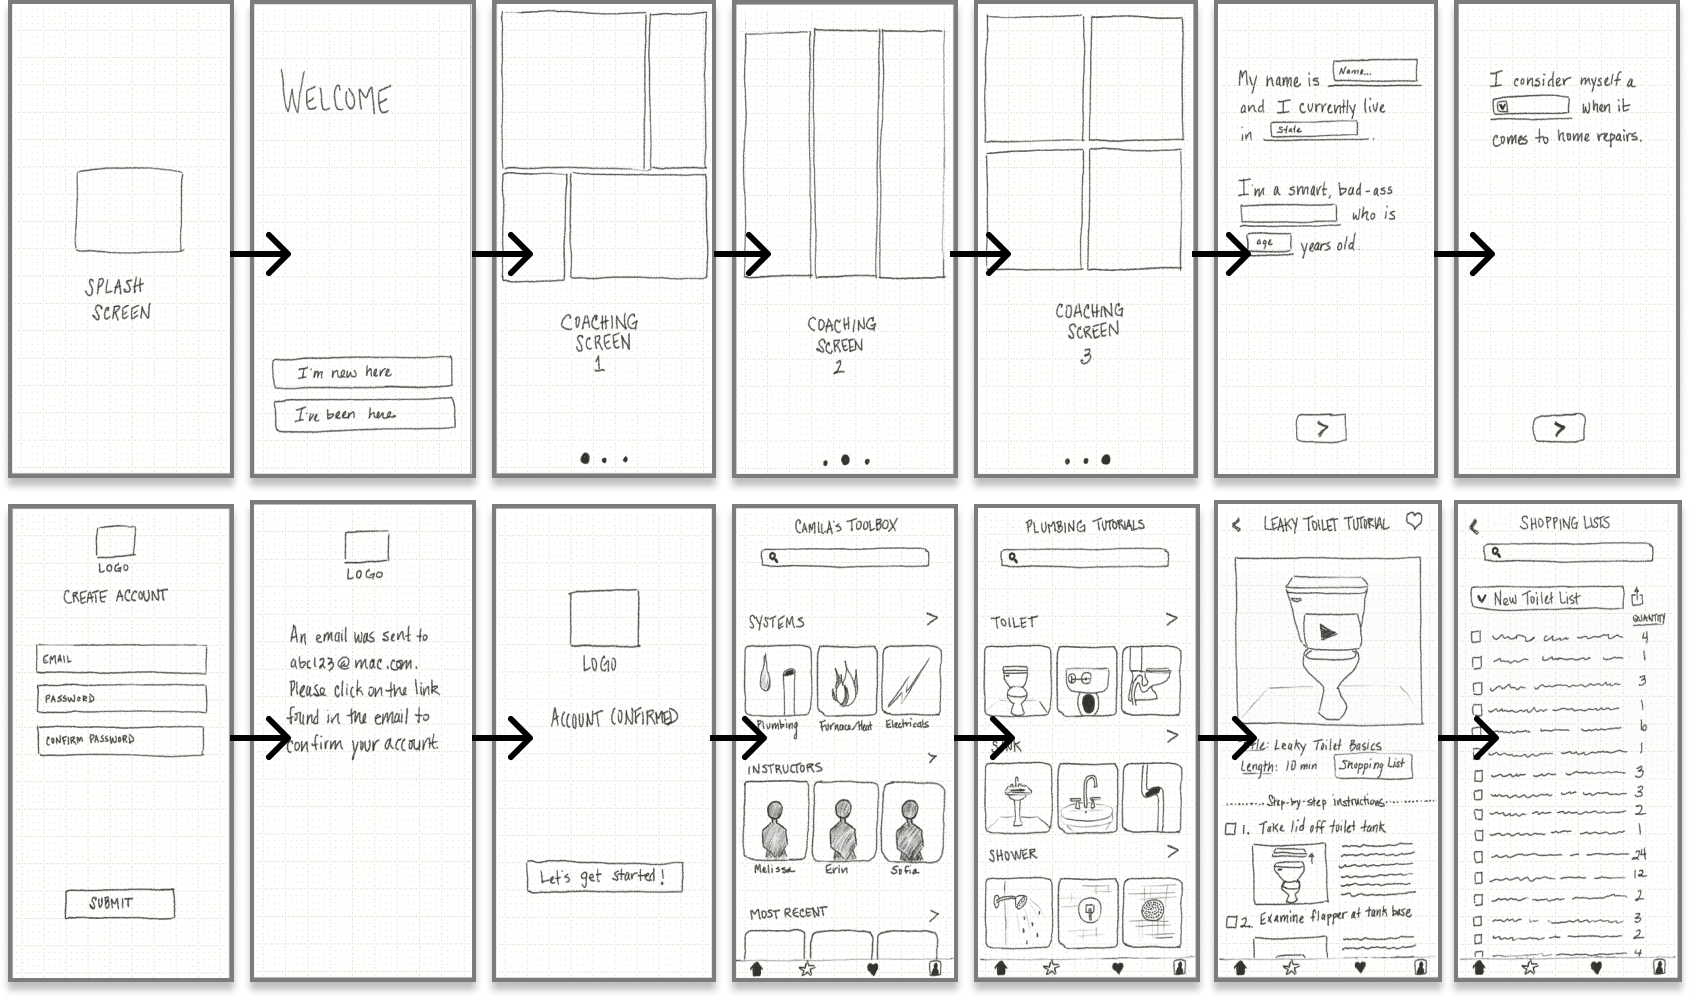 SPLASH
SCREEN
WELCOME
I'm new here
I've been here
COACHING
SCREEN
1
COACHING
SCREEN
2
COACHING
SCREEN
3
My name is Name...
and I currently live
in State.
I'm a smart, bad-ass
who is
age years old.
>
I consider myself a
when it
comes to home repairs.
>
LOGO
CREATE ACCOUNT
EMAIL
PASSWORD
CONFIRM PASSWORD
SUBMIT
LOGO
An email was sent to
abc123@mac.com.
Please click on the link
found in the email to
confirm your account.
LOGO
ACCOUNT CONFIRMED
Let's get started!
CAMILA'S TOOLBOX
SYSTEMS >
Plumbing Furnace/Heat Electricals
INSTRUCTORS >
Melissa Erin Sofia
MOST RECENT >
PLUMBING TUTORIALS
TOILET >
SINK >
SHOWER >
< LEAKY TOILET TUTORIAL
Title: Leaky Toilet Basics
Length: 10 min Shopping List
Step-by-step instructions
1. Take lid off toilet tank
2. Examine flapper at tank base
< SHOPPING LISTS
New Toilet List
QUANTITY
4
1
3
1
6
1
3
3
2
1
24
12
2
3
2
4